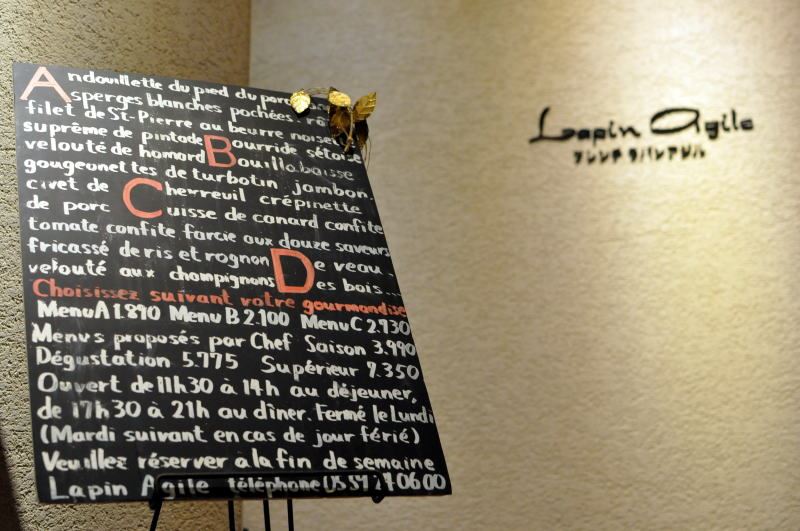 Andouillette du pied du porc
Asperges blanches pochées
filet de St-Pierre au beurre noisette
suprême de pintade Bourride sétoise
velouté de homard Bouillabaisse
gougeonettes de turbotin jambon
civet de Chevreuil crépinette
de porc Cuisse de canard confite
tomate confite farcie aux douze saveurs
fricassé de ris et rognon De veau
velouté aux champignons Des bois...
Choisissez suivant votre gourmandise
Menu A 1.890 Menu B 2.100 Menu C 2.730
Menus proposés par Chef Saison 3.990
Dégustation 5.775 Supérieur 9.350
Ouvert de 11h30 à 14h au déjeuner,
de 17h30 à 21h au dîner. Fermé le Lundi
(Mardi suivant en cas de jour férié)
Veuillez réserver à la fin de semaine
Lapin Agile téléphone
Lapin Agile
フレンチ ラパンアジル